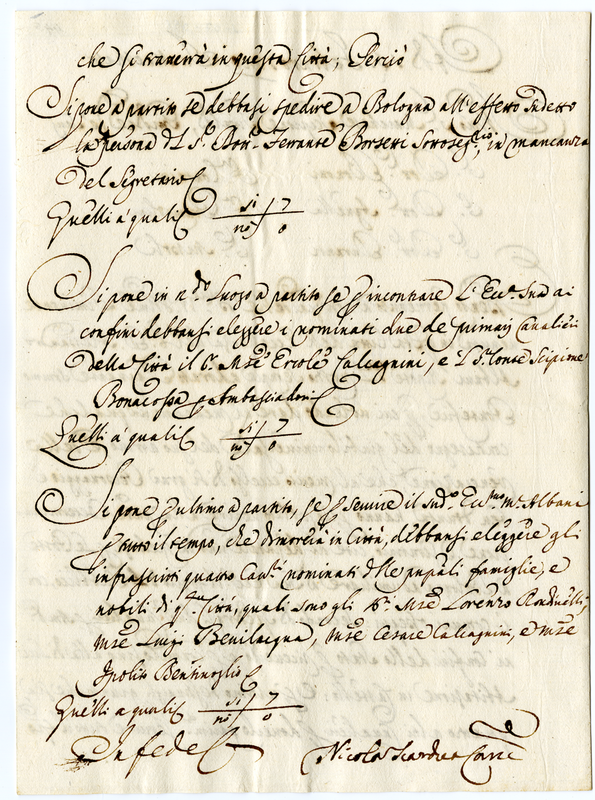 che si tratterrà in questa Città; Perciò
Si pone a partito se debbasi spedire a Bologna all'effetto sudetto
la persona del Sr. Dott. Ferrante Borsetti Sottosegrio, in mancanza
del Segretario
Quelli à quali si 7
no 0
Si pone in 2do luogo a partito se p incontrare L'Ecca. Sua ai
confini debbansi eleggere i nominati due de primarj Cavalieri
della Città il Sr. Mse Ercole Calcagnini, e L Sr. Conte Scipione
Bonacossa p Ambasciadori
Quelli à quali si 7
no 0
Si pone p ultimo a partito, se p servire il sudo. Eccmo Mr. Albani
p tutto il tempo, che dimorerà in Città, debbansi eleggere gli
infrascritti quattro Cavri nominati delle prnpali famiglie, e
nobili di qsta Città, quali sono gli Sri. Mse Lorenzo Rondinelli,
Mse Luigi Bevilacqua, Mse Cesare Calcagnini, e Mse
Ipolito Bentivoglio
Quelli a quali si 7
no 0
In fede
Nicolo